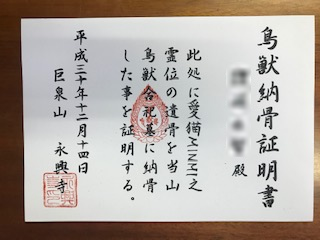 鳥獣納骨証明書
殿
此処に愛猫MINMI之
霊位の遺骨を当山
鳥獣合祀墓に納骨
した事を証明する。
平成三十年十二月十四日
巨泉山 永興寺